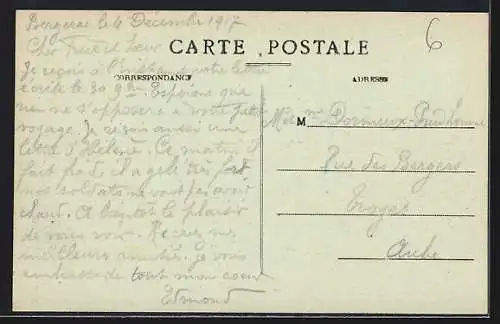 Bergerac le 4 Décembre 1917
Cher Frère et Soeur
CARTE POSTALE
6
CORRESPONDANCE
ADRESSE
Je reçois à l'instant votre lettre
écrite le 30 9bre. Espérons que
rien ne s'opposera à votre petit
voyage. Je reçois aussi une
lettre d'Hélène. Ce matin il
fait froid, il a gelé très fort,
nos soldats ne vont pas avoir
chaud. A bientôt le plaisir
de vous voir. Recevez mes
meilleures amitiés. Je vous
embrasse de tout mon coeur
Edmond
M
Dormieux-Prudhomme
Rue des Bergers
Troyes
Aube